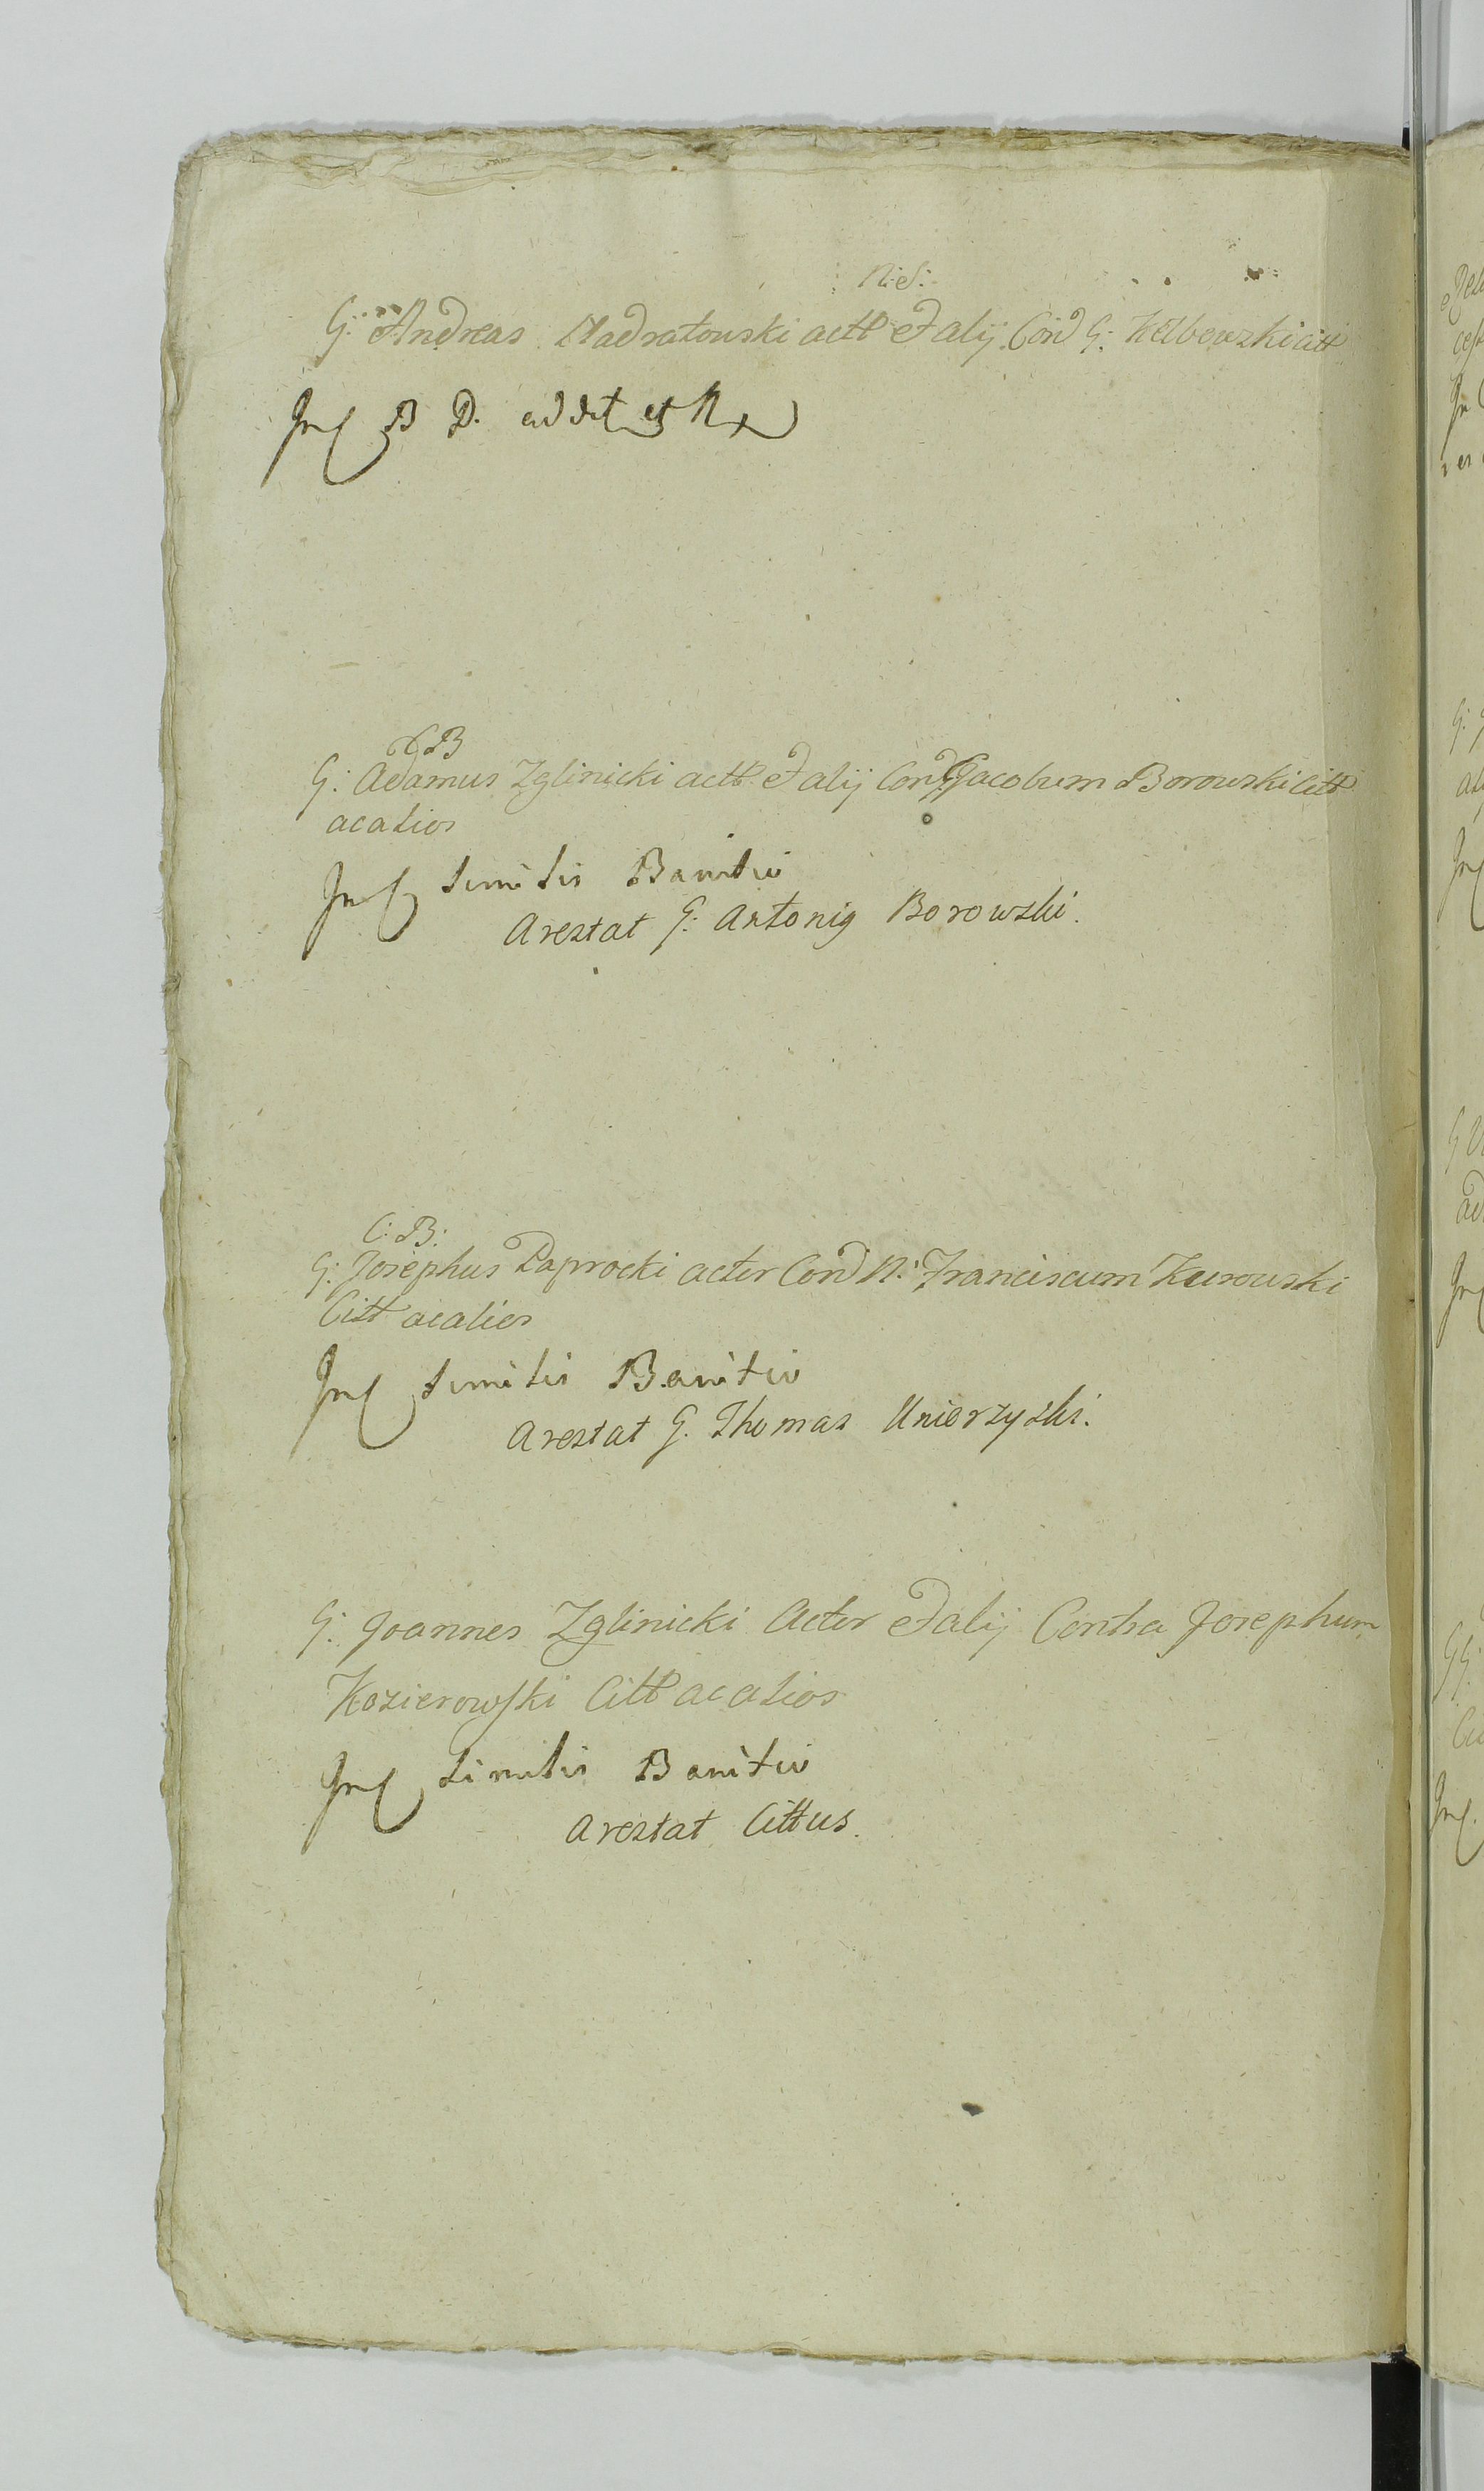 N: S:
G: Andreas Nadratowski actt et alij Con G: Kełbowski citt
In C B D. addit et R
C B
G: Adamus Zglinicki actt et alij Con G Jacobum Borowski Citt
ac alios
In C similis Banitio
Arestat G: Antonig Borowski.
C: B:
G: Josephus Paprocki actor Con N: Franciscum Kurowski
Citt ac alios
In C similis Banitio
Arestat G. Thomas Unierzyski.
G: Joannes Zglinicki Actor et alij Contra Josephum
Kozierowski Citt ac alios
In C similis Banitio
Arestat Cittus.